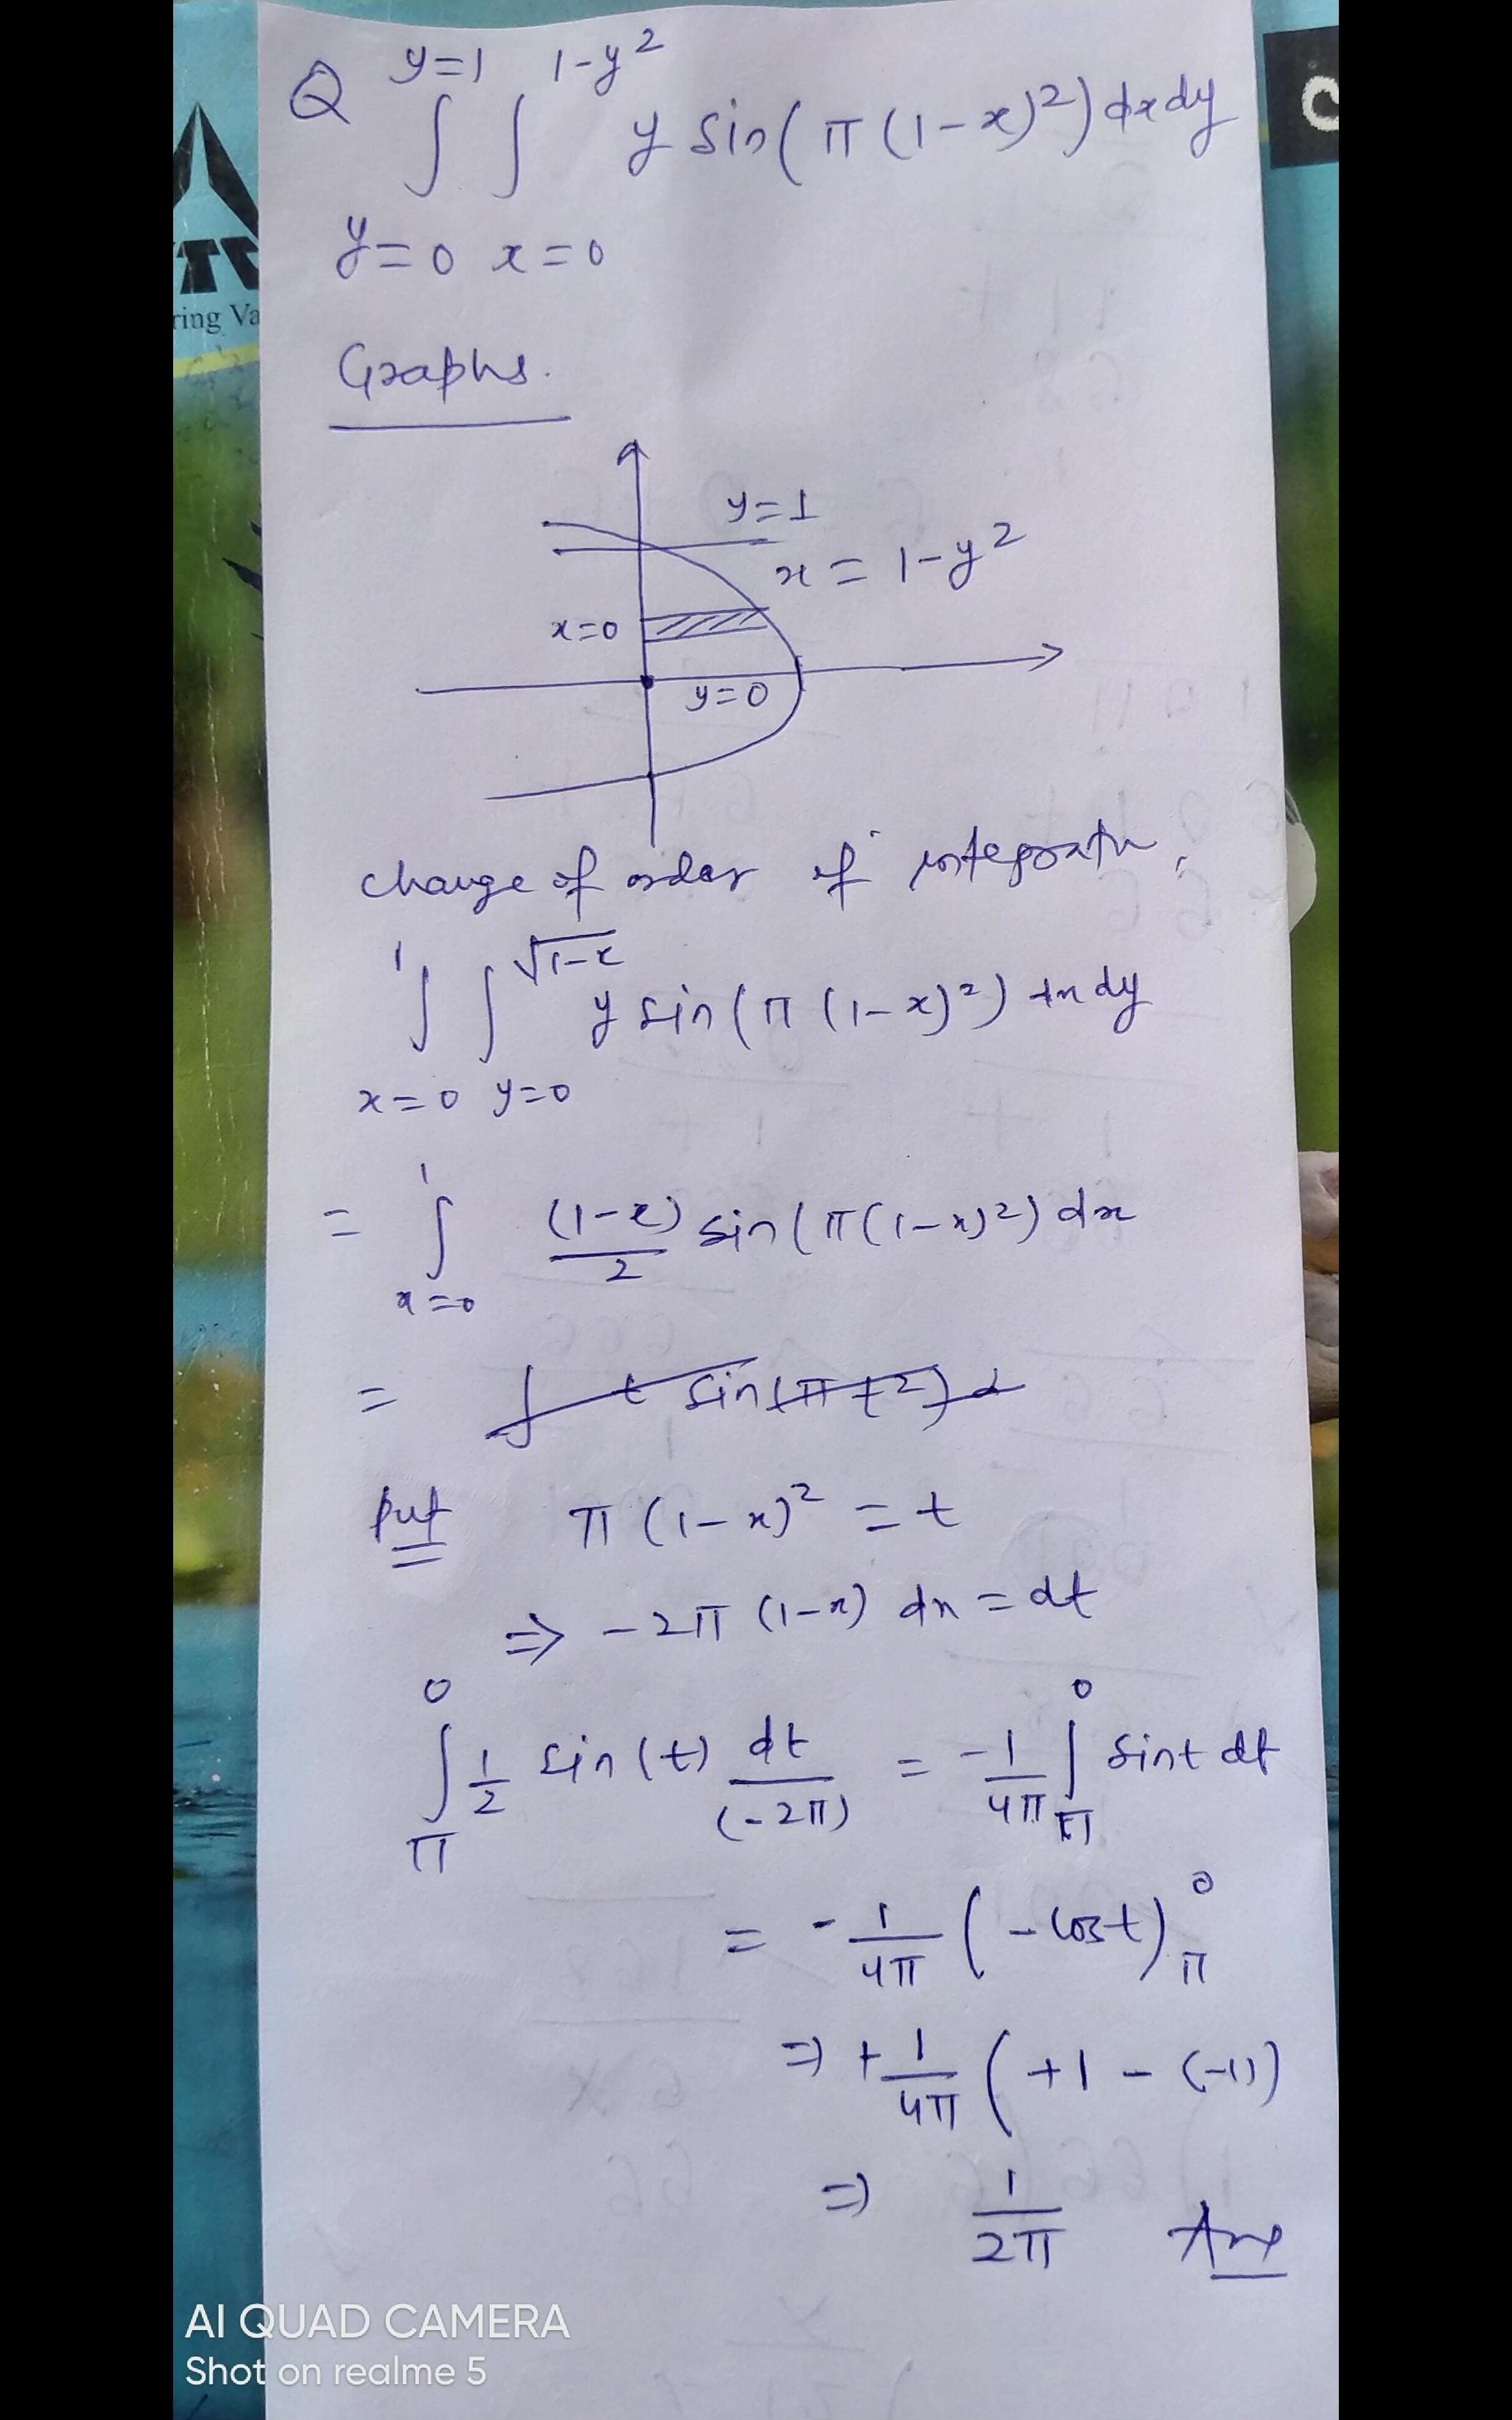 Q ∫_{y=0}^{y=1} ∫_{x=0}^{1-y²} y sin(π(1-x)²) dx dy
Graphs.
y=1
x = 1-y²
x=0
y=0
change of order of integratn,
∫_{x=0}^{1} ∫_{y=0}^{√(1-x)} y sin(π(1-x)²) dx dy
= ∫_{x=0}^{1} (1-x)/2 sin(π(1-x)²) dx
= ∫ t sin(πt²) d
put π(1-x)² = t
⇒ -2π (1-x) dx = dt
∫_{π}^{0} 1/2 sin(t) dt/(-2π) = -1/4π ∫_{π}^{0} sint dt
= -1/4π (-cost)_{π}^{0}
⇒ +1/4π (+1 - (-1))
⇒ 1/2π Ans
TT
ring Va
C
AI QUAD CAMERA
Shot on realme 5